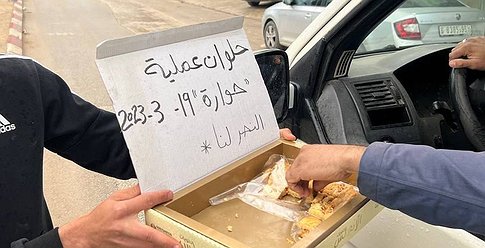 حلوان عملية
"حوارة" 19-3-2023
النصر لنا *
adidas